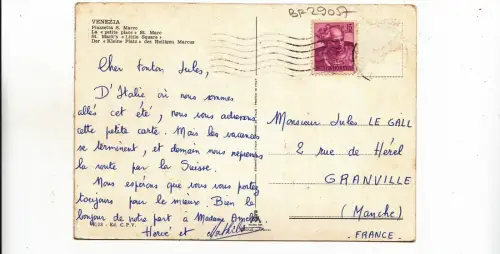 BR29057
VENEZIA
Piazzetta S. Marco
La « petite place » St. Marc
St. Mark's « Little Square »
Der « Kleine Platz » des Heiligen Marcus
Cher tonton Jules,
D'Italie où nous sommes
allés cet été, nous vous adressons
cette petite carte. Mais les vacances
se terminent, et demain nous reprenons
la route par la Suisse.
Nous espérons que vous vous portez
toujours pour le mieux. Bien le
bonjour de notre part à Madame Amelin
Hervé et Mathilde
Ed. C.P.V.
Monsieur Jules LE GALL
2 rue de Hérel
GRANVILLE
(Manche)
FRANCE